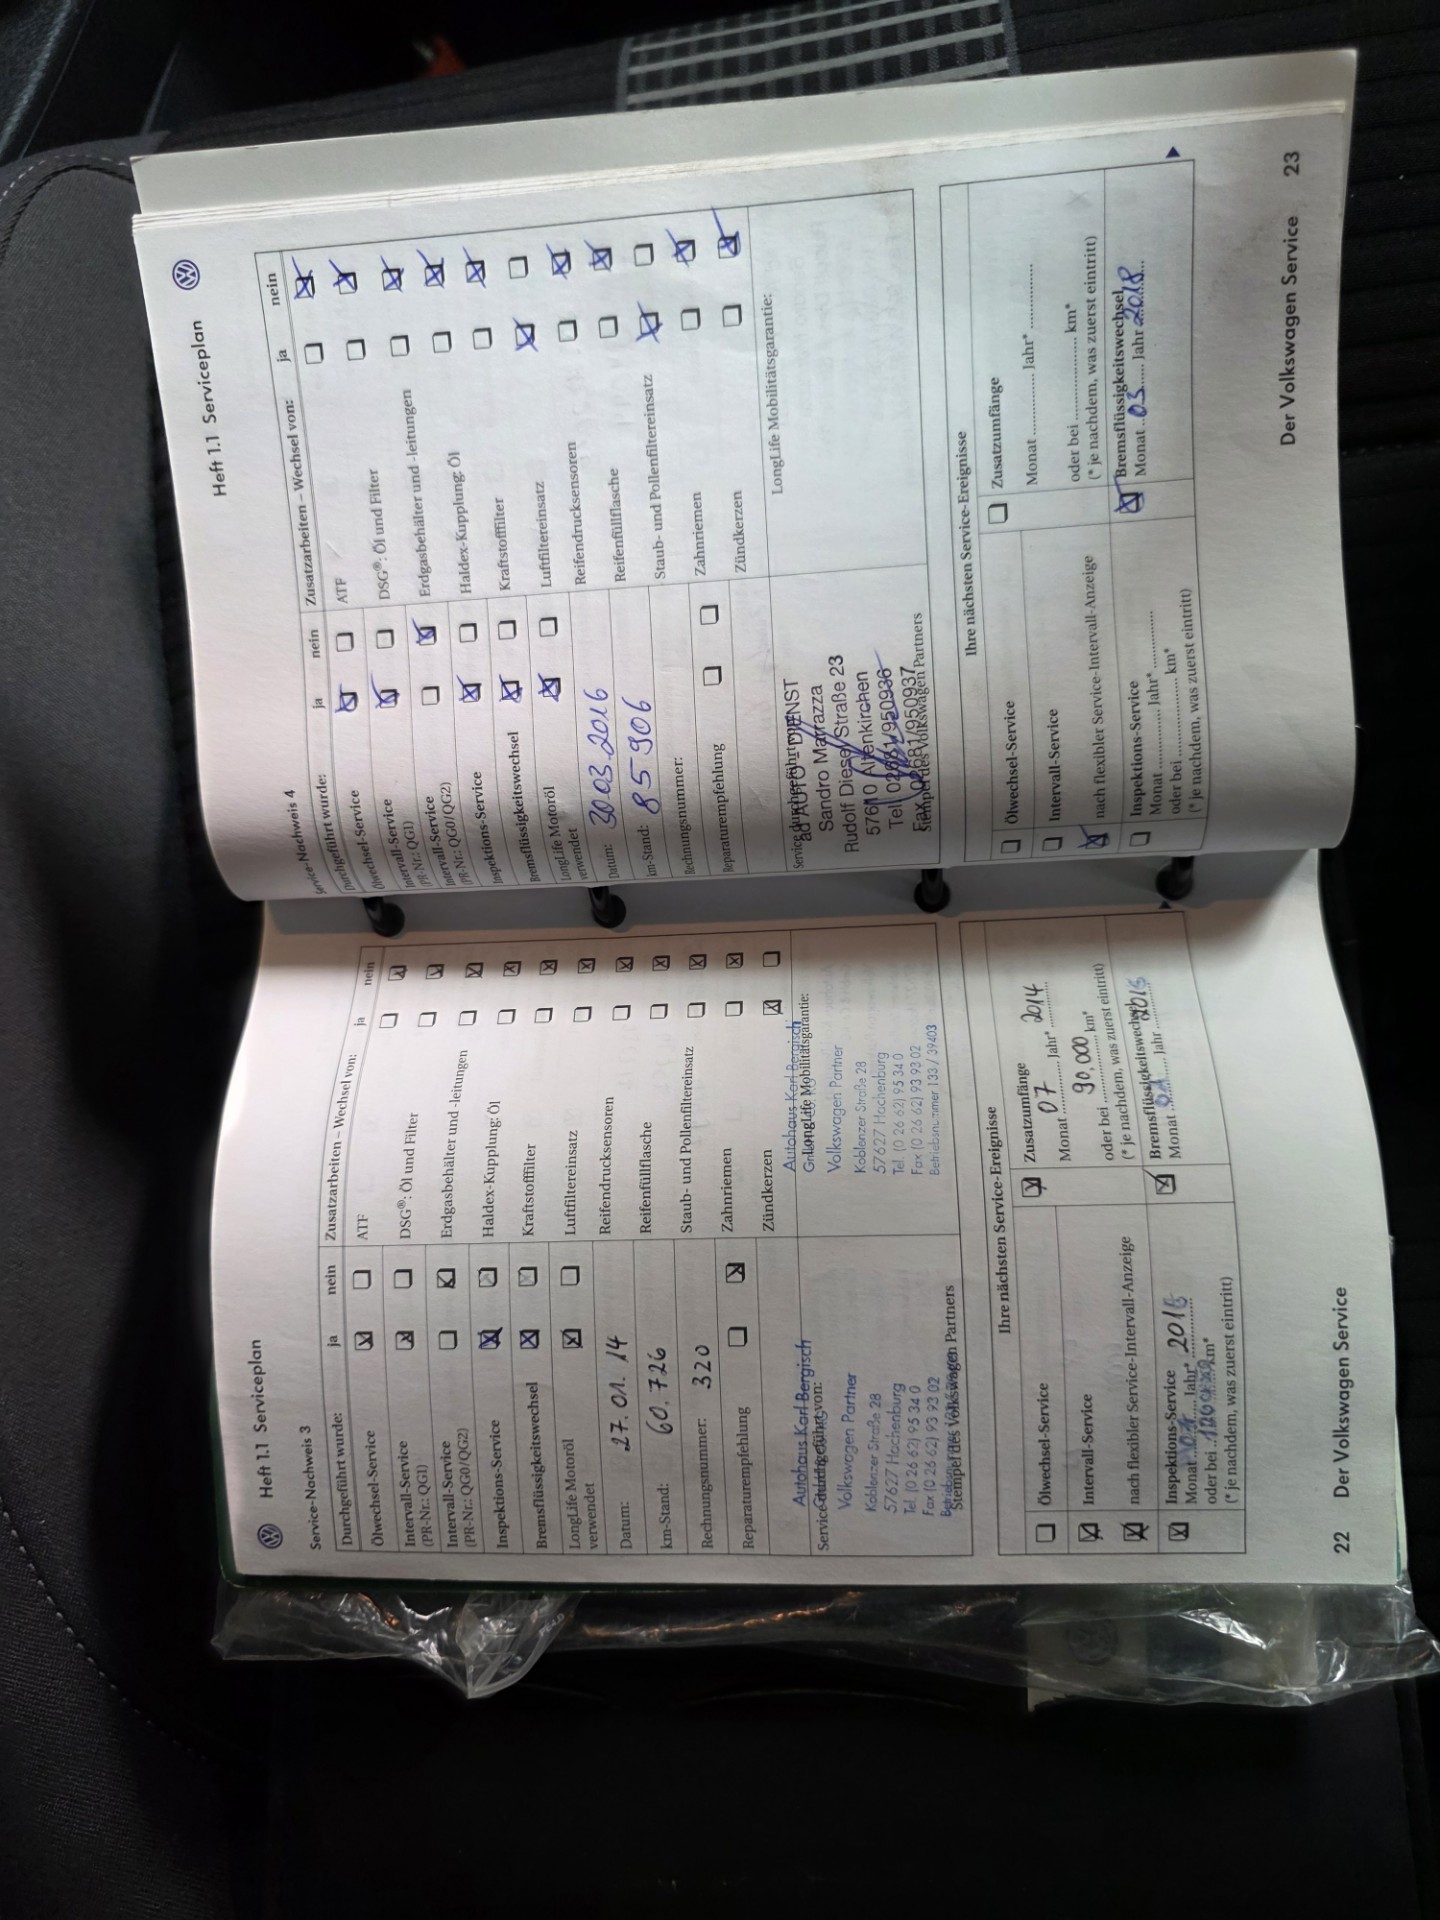 Heft 1.1 Serviceplan
Service-Nachweis 3
Durchgeführt wurde: ja nein
Ölwechsel-Service
Intervall-Service
(PR-Nr.: QG1)
Intervall-Service
(PR-Nr.: QG0/QG2)
Inspektions-Service
Bremsflüssigkeitswechsel
LongLife Motoröl
verwendet
Datum: 27.01.14
km-Stand: 60.726
Rechnungsnummer: 320
Reparaturempfehlung
Zusatzarbeiten – Wechsel von: ja nein
ATF
DSG®: Öl und Filter
Erdgasbehälter und -leitungen
Haldex-Kupplung: Öl
Kraftstofffilter
Luftfiltereinsatz
Reifendrucksensoren
Reifenfüllflasche
Staub- und Pollenfiltereinsatz
Zahnriemen
Zündkerzen
Service durchgeführt von:
Autohaus Karl Bergisch
Volkswagen Partner
Koblenzer Straße 28
57627 Hachenburg
Tel. (0 26 62) 95 34 0
Fax (0 26 62) 93 93 02
Stempel des Volkswagen Partners
LongLife Mobilitätsgarantie:
Autohaus Karl Bergisch
Volkswagen Partner
Koblenzer Straße 28
57627 Hachenburg
Tel. (0 26 62) 95 34 0
Fax (0 26 62) 93 93 02
Betriebsnummer 133 / 39403
Ihre nächsten Service-Ereignisse
Ölwechsel-Service
Intervall-Service
nach flexibler Service-Intervall-Anzeige
Inspektions-Service
Monat Jahr*
oder bei km*
(* je nachdem, was zuerst eintritt)
Zusatzumfänge
Monat 07 Jahr* 2014
oder bei 90.000 km*
(* je nachdem, was zuerst eintritt)
Bremsflüssigkeitswechsel
Monat Jahr
22 Der Volkswagen Service
Heft 1.1 Serviceplan
Service-Nachweis 4
Durchgeführt wurde: ja nein
Ölwechsel-Service
Intervall-Service
(PR-Nr.: QG1)
Intervall-Service
(PR-Nr.: QG0/QG2)
Inspektions-Service
Bremsflüssigkeitswechsel
LongLife Motoröl
verwendet
Datum: 30.03.2016
km-Stand: 85906
Rechnungsnummer:
Reparaturempfehlung
Zusatzarbeiten – Wechsel von: ja nein
ATF
DSG®: Öl und Filter
Erdgasbehälter und -leitungen
Haldex-Kupplung: Öl
Kraftstofffilter
Luftfiltereinsatz
Reifendrucksensoren
Reifenfüllflasche
Staub- und Pollenfiltereinsatz
Zahnriemen
Zündkerzen
Service durchgeführt von:
ad AUTO - DIENST
Sandro Marrazza
Rudolf Diesel Straße 23
57610 Altenkirchen
Tel. 02681/950936
Fax 02681/950937
Stempel des Volkswagen Partners
LongLife Mobilitätsgarantie:
Ihre nächsten Service-Ereignisse
Ölwechsel-Service
Intervall-Service
nach flexibler Service-Intervall-Anzeige
Inspektions-Service
Monat Jahr*
oder bei km*
(* je nachdem, was zuerst eintritt)
Zusatzumfänge
Monat Jahr*
oder bei km*
(* je nachdem, was zuerst eintritt)
Bremsflüssigkeitswechsel
Monat 03 Jahr 2018
Der Volkswagen Service 23